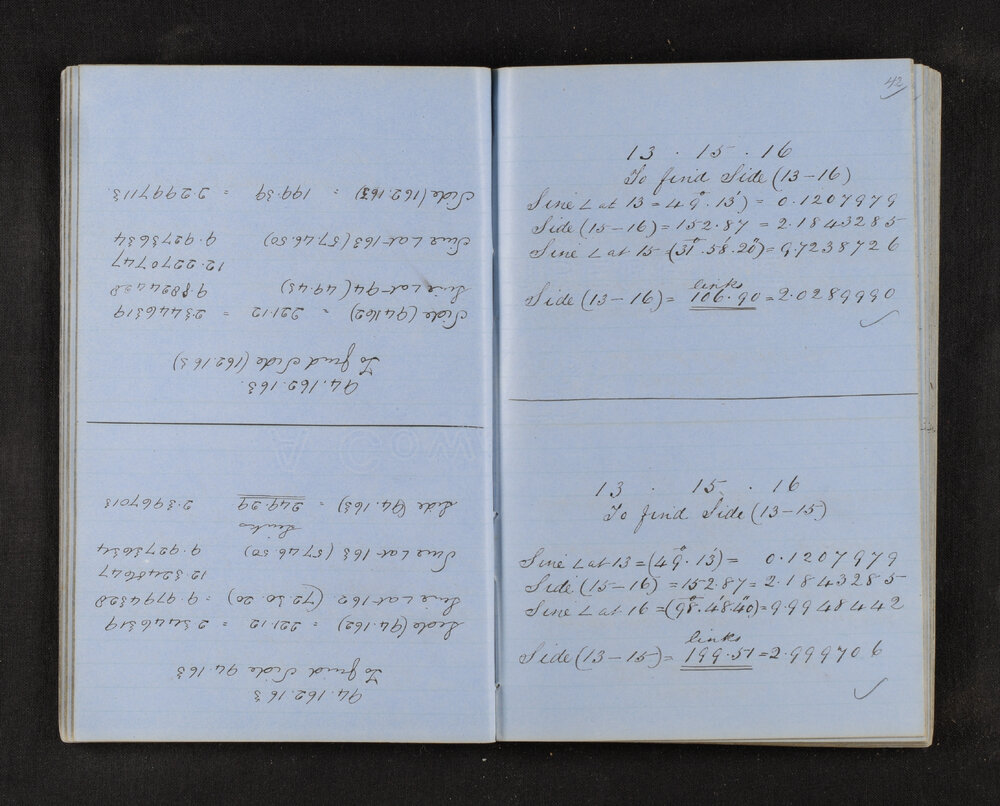 94.162.163
To find Side 94.163
Side (94.162) = 221.12 = 2.3446319
Sine ∠ at 162 (72.30.20) = 9.9794328
12.3240647
Sine ∠ at 163 (57.46.50) 9.9273634
Links
Side (94.163) = 249.29 2.3967013
94.162.163.
To find Side (162.163)
Side (94.162) = 221.12 = 2.3446319
Sine ∠ at 94 (49.43) 9.8824428
12.2270747
Sine ∠ at 163 (57.46.50) 9.9273634
Side (162.163) = 199.39 = 2.2997113
42
13 . 15 . 16
To find Side (13-16)
Sine ∠ at 13 = 49°. 13') = 0.1207979
Side (15-16) = 152.87 = 2.1843285
Sine ∠ at 15 (31°.58'.20") = 9.7238726
links
Side (13-16) = 106.90 = 2.0289990
13 . 15 . 16
To find Side (13-15)
Sine ∠ at 13 = (49°. 13') = 0.1207979
Side (15-16) = 152.87 = 2.1843285
Sine ∠ at 16 = (98°.48'.40") = 9.9948442
links
Side (13-15) = 199.51 = 2.999706